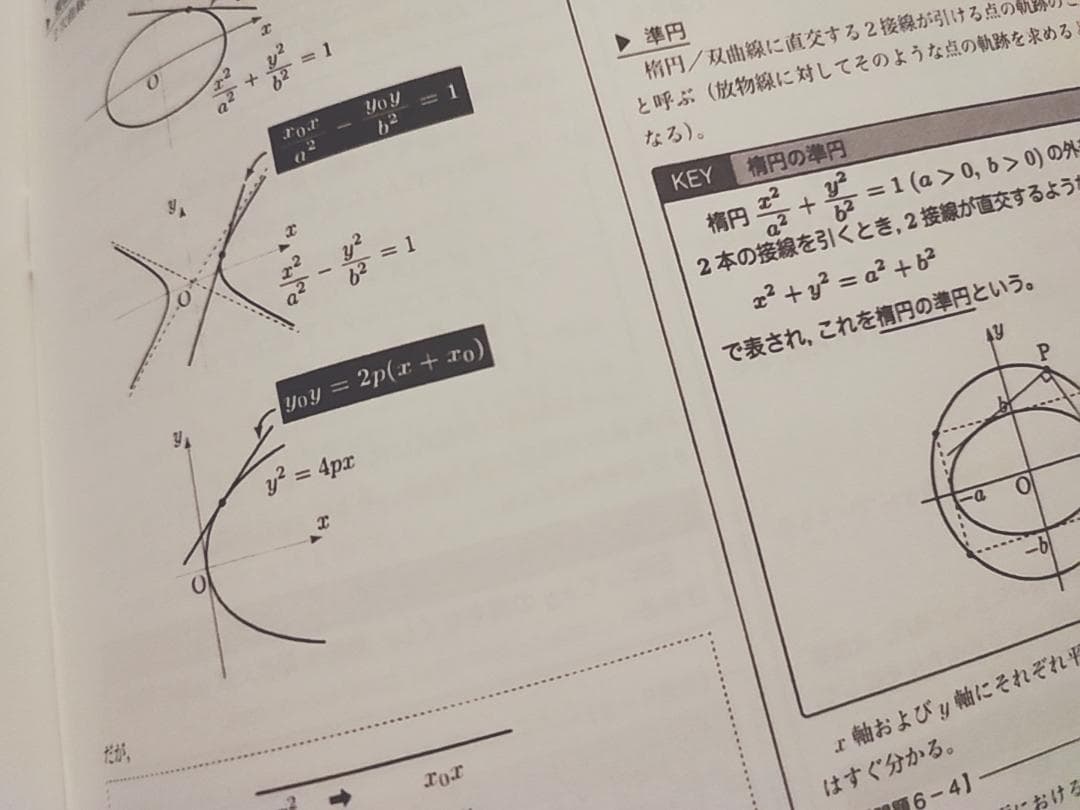 x
O
x²/a² + y²/b² = 1
x₀x/a² − y₀y/b² = 1
y
x
O
x²/a² − y²/b² = 1
y₀y = 2p(x + x₀)
y
y² = 4px
x
O
だが,
x₀x
▶ 準円
楕円／双曲線に直交する2接線が引ける点の軌跡の
と呼ぶ（放物線に対してそのような点の軌跡を求めると
なる）。
KEY 楕円の準円
楕円 x²/a² + y²/b² = 1 (a > 0, b > 0) の外
2本の接線を引くとき, 2接線が直交するような
x² + y² = a² + b²
で表され, これを楕円の準円という。
y
P
b
−a
O
−b
x軸およびy軸にそれぞれ平
はすぐ分かる。
題6−4】
における